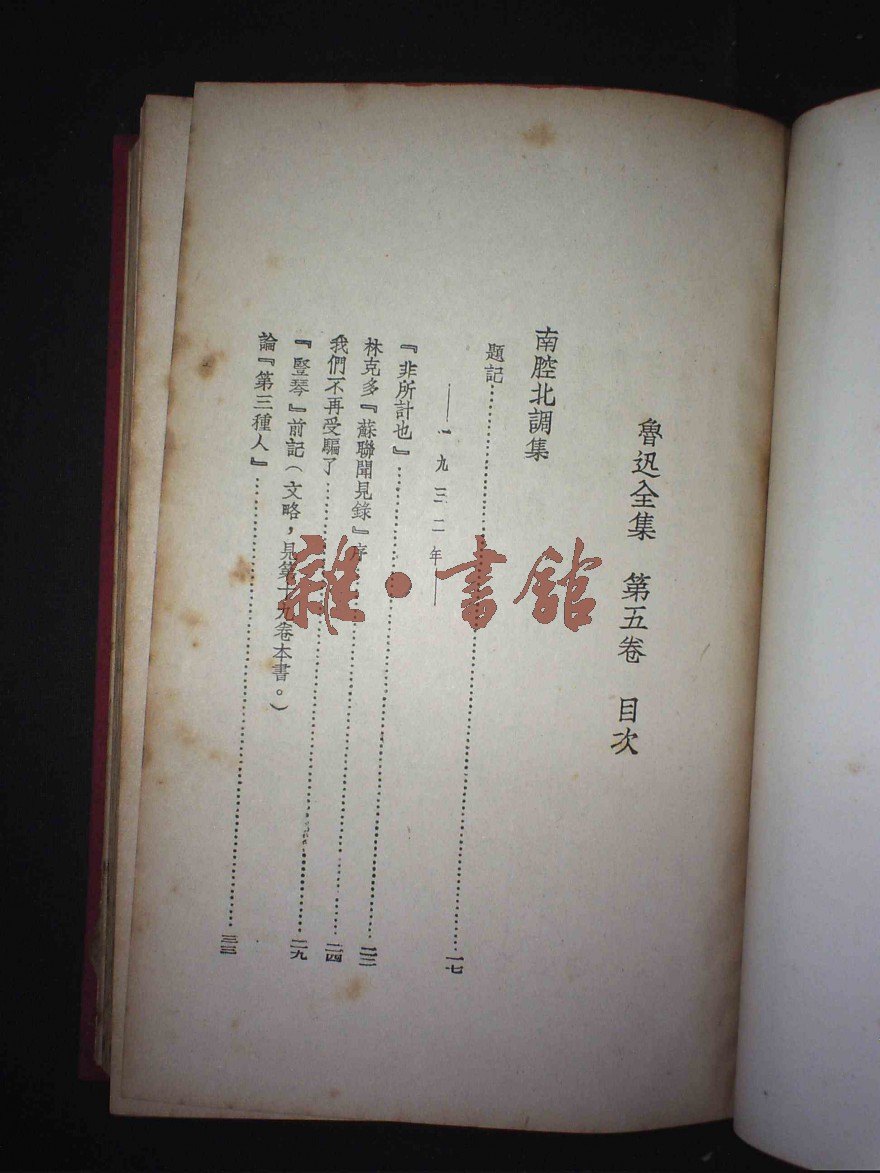 魯迅全集 第五卷 目次
南腔北調集
題記……一七
——一九三二年——
『非所計也』……
林克多『蘇聯聞見錄』序……二四
我們不再受騙了……二九
『豎琴』前記(文略,見第十九卷本書。)
論『第三種人』……三三
雜·書館